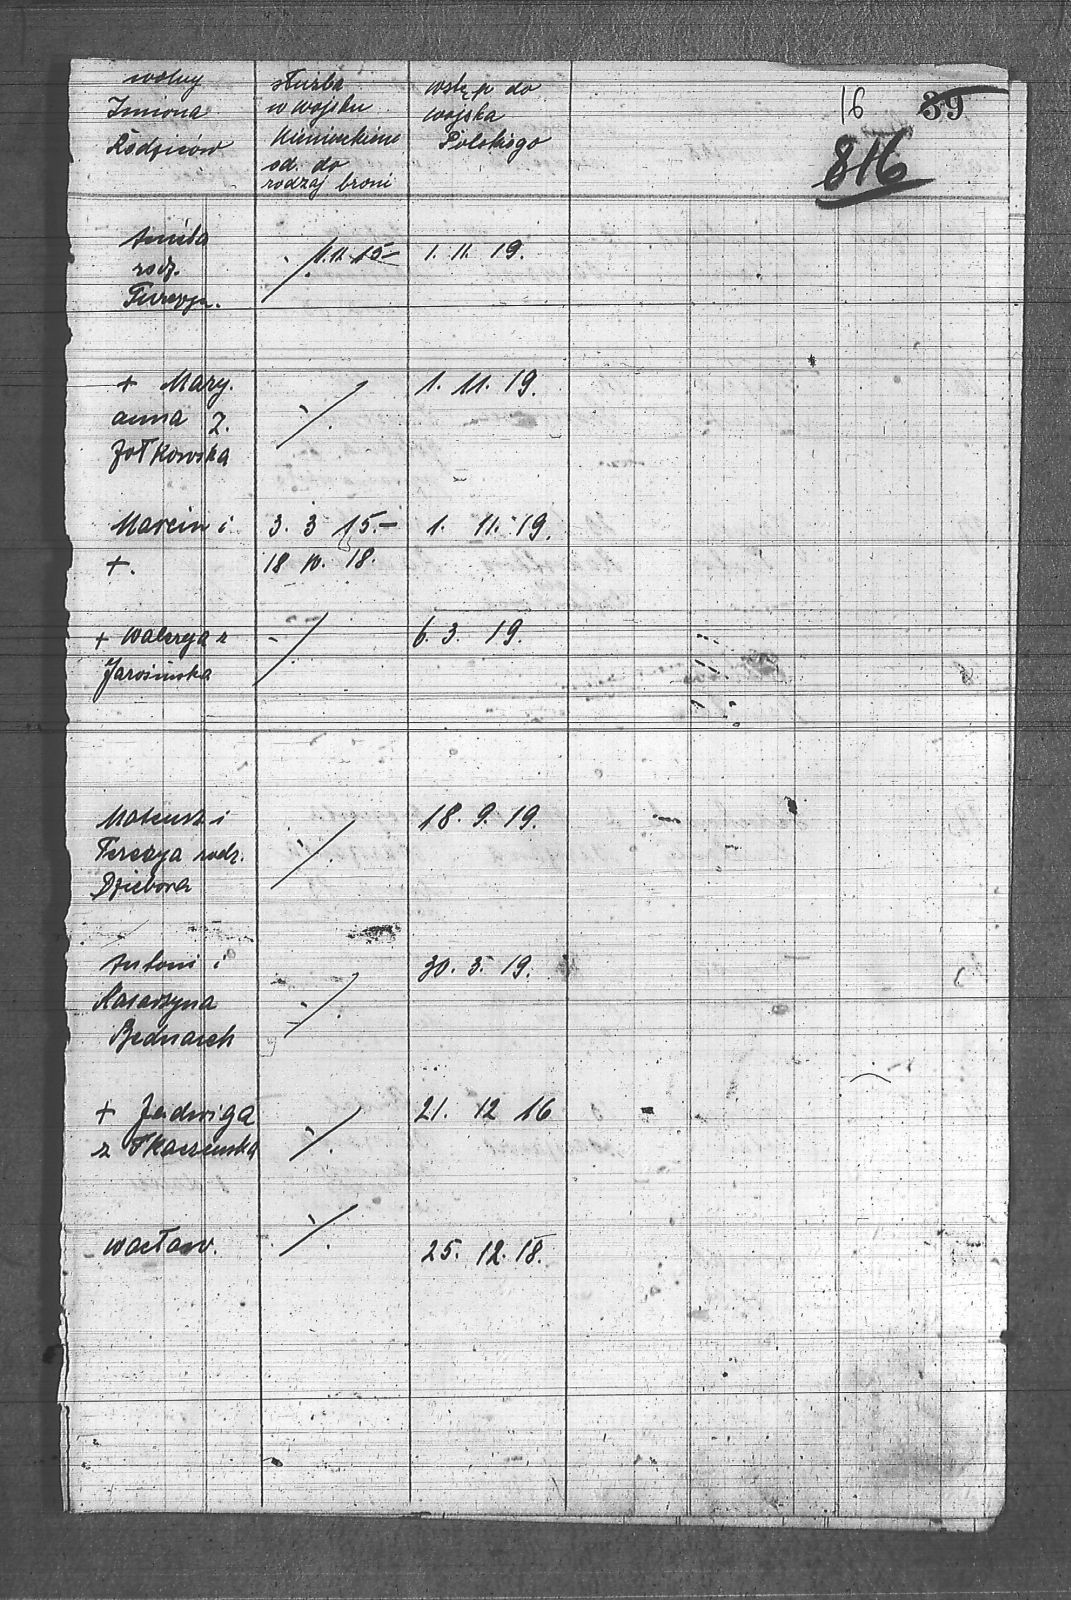 wolny
Imiona
Rodziców
służba
w wojsku
niemieckiem
od. do
rodzaj broni
wstęp do
wojska
Polskiego
16 39
816
Aniela
rodz.
1.11.15– 1. 11. 19.
+ Mary.
anna z.
Żołkowska
1. 11. 19.
Marcin i 3. 3 15.– 1. 11. 19.
+. 18 10. 18.
+ Waleryja z 6. 3. 19.
Jarosinska
Mateusz i 18. 9. 19.
Terezya rodz.
Dziebora
Antoni i 30. 3. 19.
Katarzyna
Bednarek
+ Jadwiga 21. 12 16
z Tkaczewska
Wacław. 25. 12. 18.